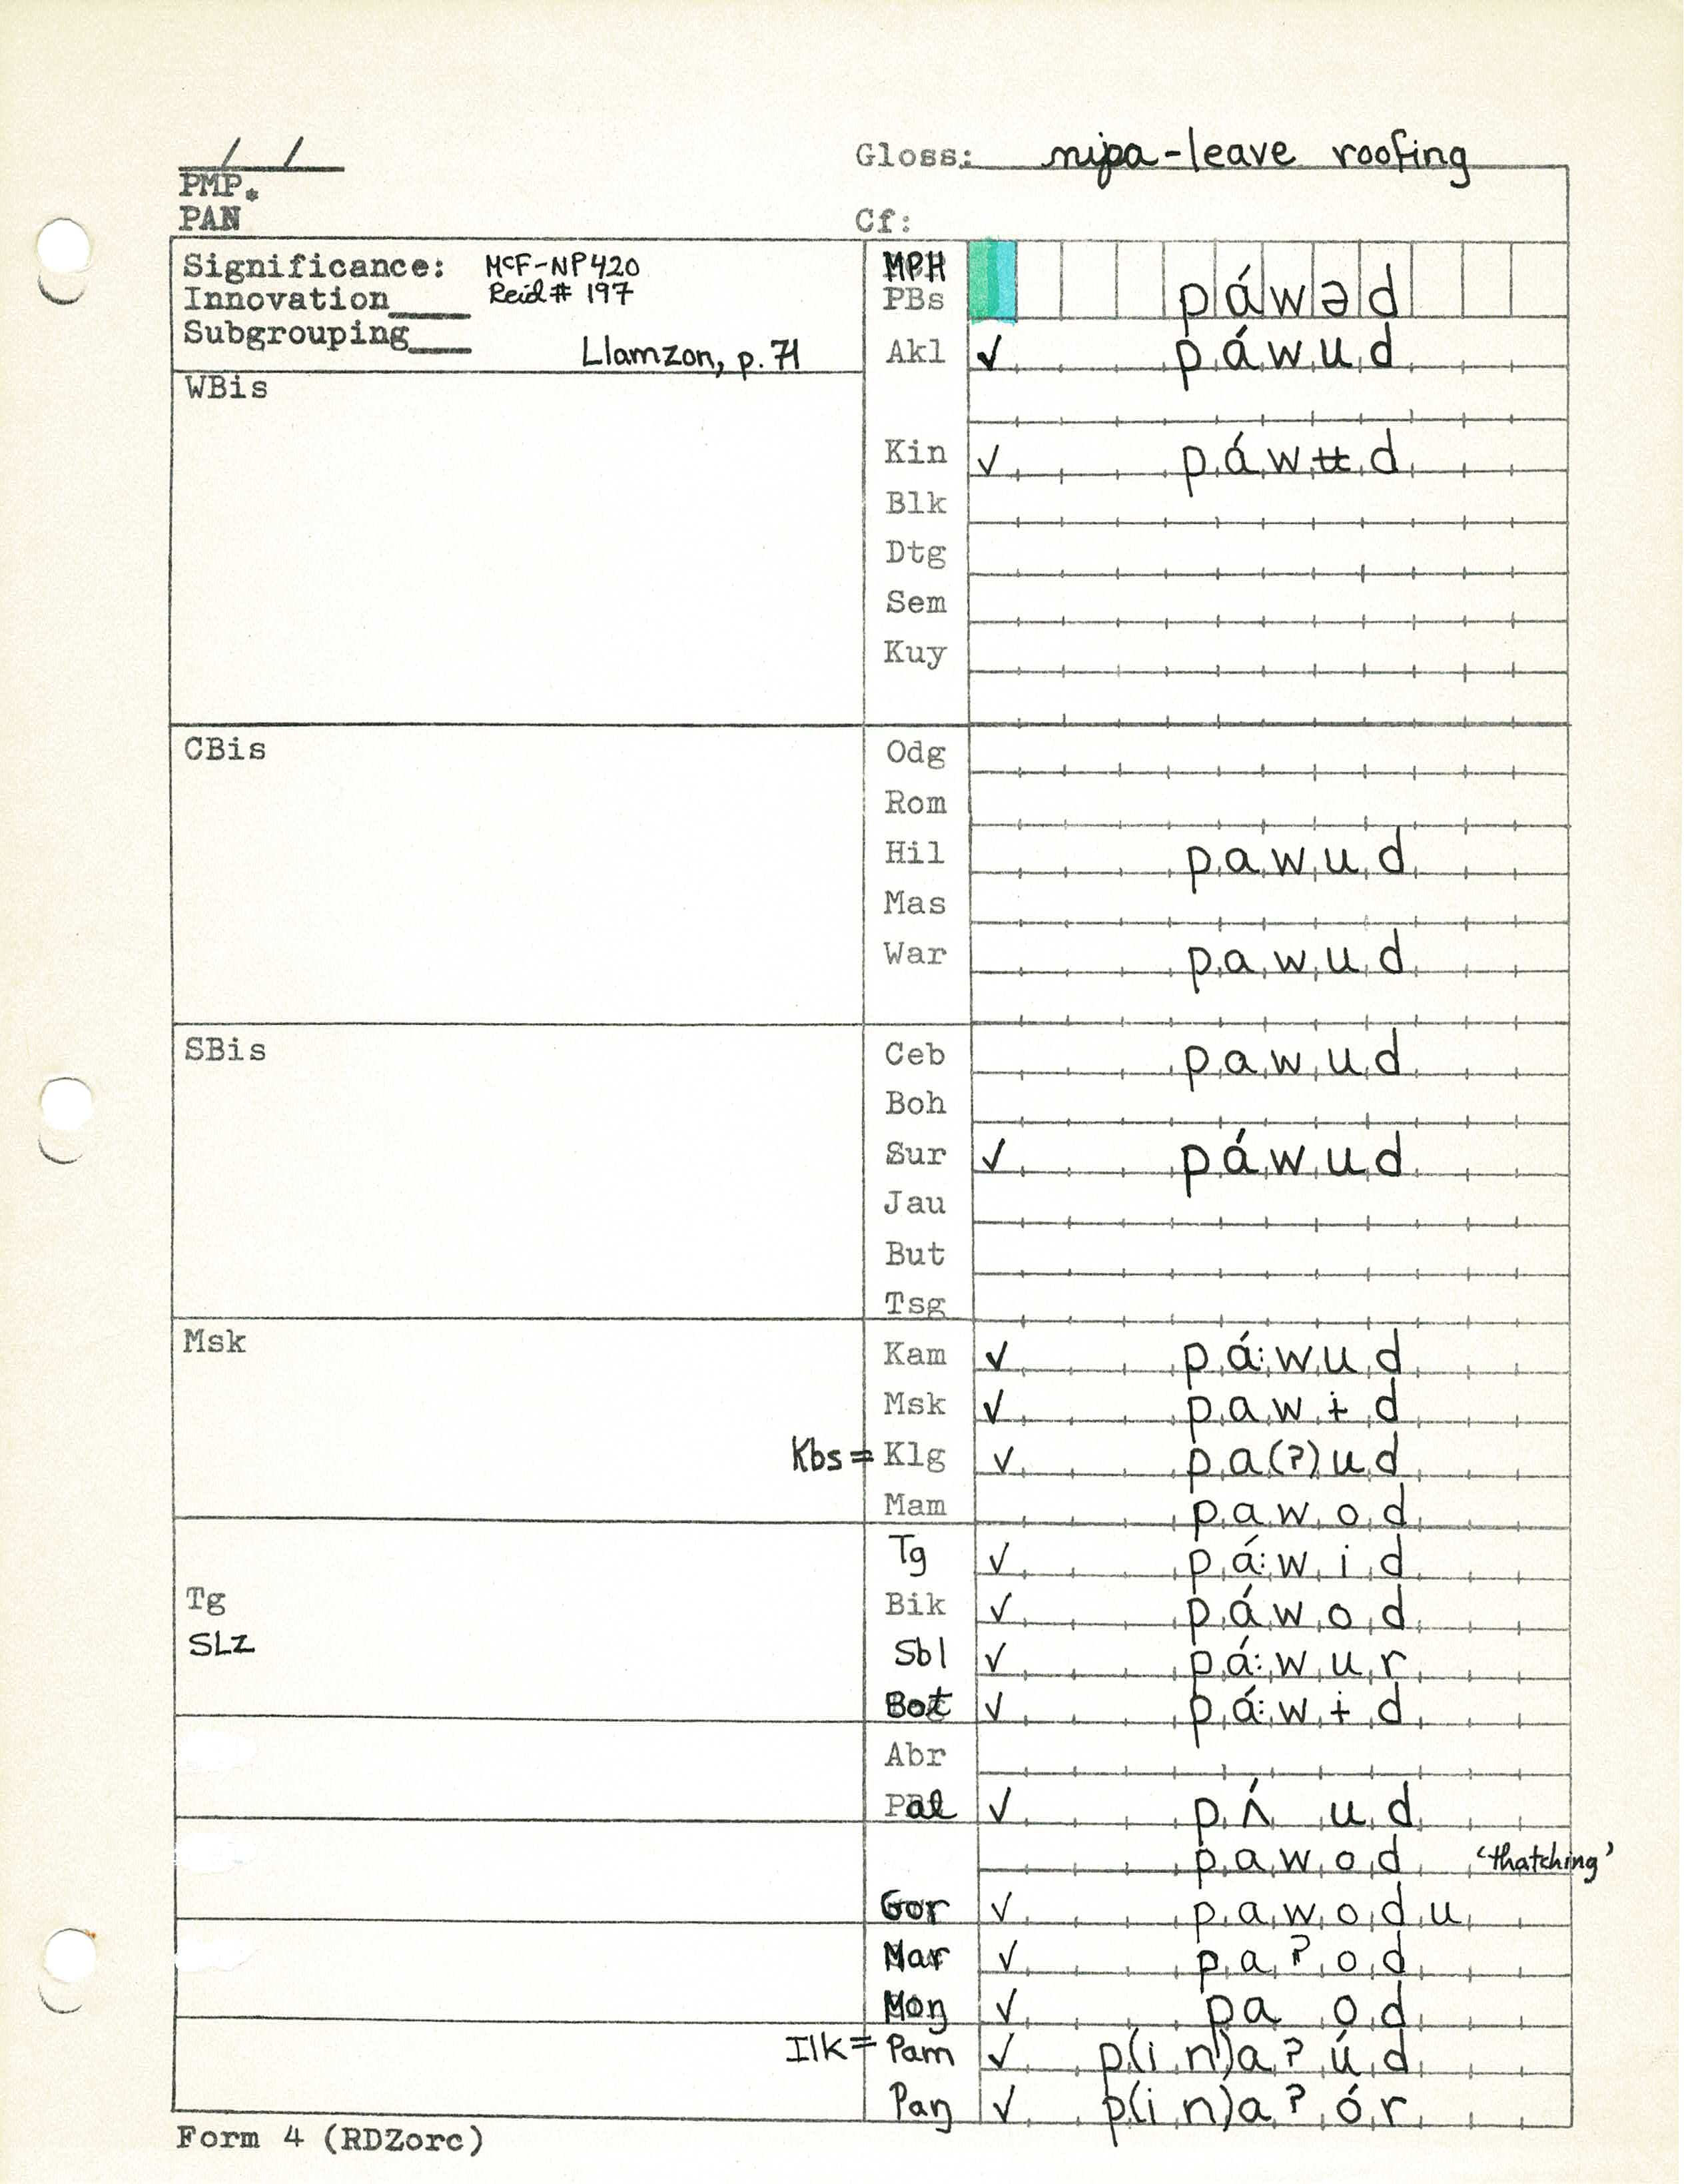 Gloss: nipa-leave roofing
PMP*
PAN
Cf:
Significance: McF-NP420
Innovation____ Reid # 197
Subgrouping___ Llamzon, p. 71
MPH
PBs páwəd
Akl ✓ páwud
WBis
Kin ✓ páwʉd
Blk
Dtg
Sem
Kuy
CBis
Odg
Rom
Hil pawud
Mas
War pawud
SBis
Ceb pawud
Boh
Sur ✓ páwud
Jau
But
Tsg
Msk
Kam ✓ pá:wud
Msk ✓ pawɨd
Kbs = Klg ✓ pa(ʔ)ud
Mam pawod
Tg ✓ pá:wid
Tg
Bik ✓ páwod
SLZ
Sbl ✓ pá:wur
Bot ✓ pá:wɨd
Abr
Pal ✓ pʌ́ ud
pawod 'thatching'
Gor ✓ pawodu
Mar ✓ paʔod
Moŋ ✓ pa od
Ilk = Pam ✓ p(in)aʔúd
Paŋ ✓ p(in)aʔór
Form 4 (RDZorc)